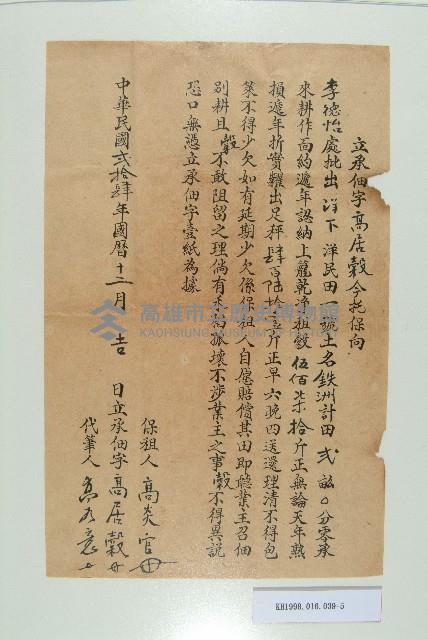 立承佃字高居穀今托保向
李德怡處批出洋下洋民田 號土名鉄洲計田弍畝〇分零承
來耕作面約遞年認納上籠乾净租穀伍佰柒拾斤正無論天年熟
損遞年折實糶出足秤肆百陆拾 斤正早六晚四送還理清不得包
菜不得少欠如有延期少欠係保租人自愿賠償其田即聽業主召佃
别耕且穀不敢阻留之理倘有 為振壞不涉業主之事穀不得異說
恐口無憑立承佃字壹紙為據
中華民國弍拾肆年國曆十二月 吉 日立承佃字高居穀
保租人高炎官
代筆人
高雄市立歷史博物館
KAOHSIUNG MUSEUM OF HISTORY
KH1998.016.039-5